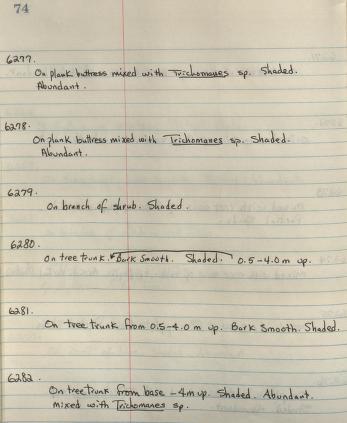 74
6277.
On plank buttress mixed with Trichomanes sp. Shaded.
Abundant.
6278.
On plank buttress mixed with Trichomanes sp. Shaded.
Abundant.
6279.
On branch of shrub. Shaded.
6280.
On tree trunk. Bark Smooth. Shaded. 0.5-4.0 m up.
6281.
On tree trunk from 0.5-4.0 m up. Bark Smooth. Shaded.
6282.
On tree trunk from base -4m up. Shaded. Abundant.
mixed with Trichomanes sp.